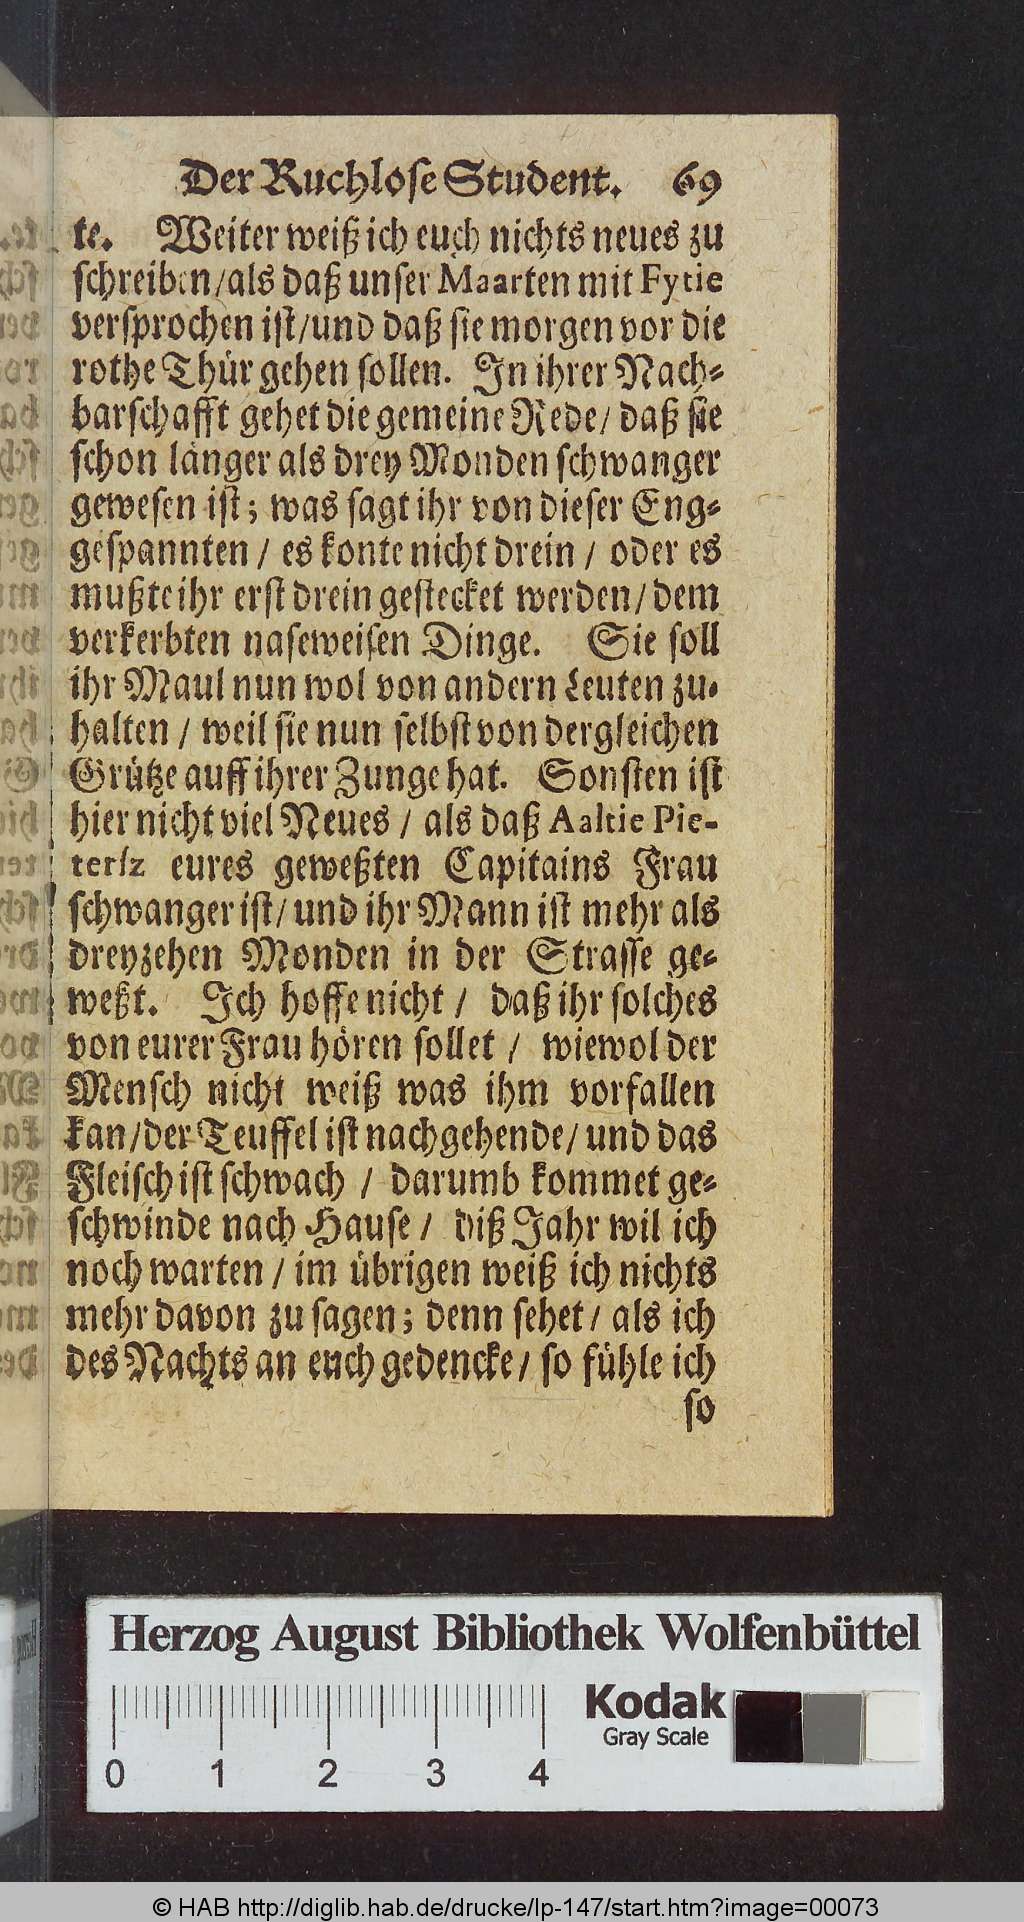 Der Ruchlose Student. 69
te. Weiter weiß ich euch nichts neues zu
schreiben/als daß unser Maarten mit Fytie
versprochen ist/und daß sie morgen vor die
rothe Thür gehen sollen. In ihrer Nach-
barschafft gehet die gemeine Rede/ daß sie
schon länger als drey Monden schwanger
gewesen ist; was sagt ihr von dieser Eng-
gespannten / es konte nicht drein / oder es
mußte ihr erst drein gestecket werden/dem
verkerbten naseweisen Dinge. Sie soll
ihr Maul nun wol von andern Leuten zu-
halten / weil sie nun selbst von dergleichen
Grütze auff ihrer Zunge hat. Sonsten ist
hier nicht viel Neues / als daß Aaltie Pie-
terſz eures geweßten Capitains Frau
schwanger ist/ und ihr Mann ist mehr als
dreyzehen Monden in der Strasse ge-
weßt. Ich hoffe nicht / daß ihr solches
von eurer Frau hören sollet / wiewol der
Mensch nicht weiß was ihm vorfallen
kan/der Teuffel ist nachgehende/ und das
Fleisch ist schwach / darumb kommet ge-
schwinde nach Hause / diß Jahr wil ich
noch warten / im übrigen weiß ich nichts
mehr davon zu sagen; denn sehet/ als ich
des Nachts an euch gedencke/ so fühle ich
so
Herzog August Bibliothek Wolfenbüttel
Kodak
Gray Scale
0 1 2 3 4
© HAB http://diglib.hab.de/drucke/lp-147/start.htm?image=00073